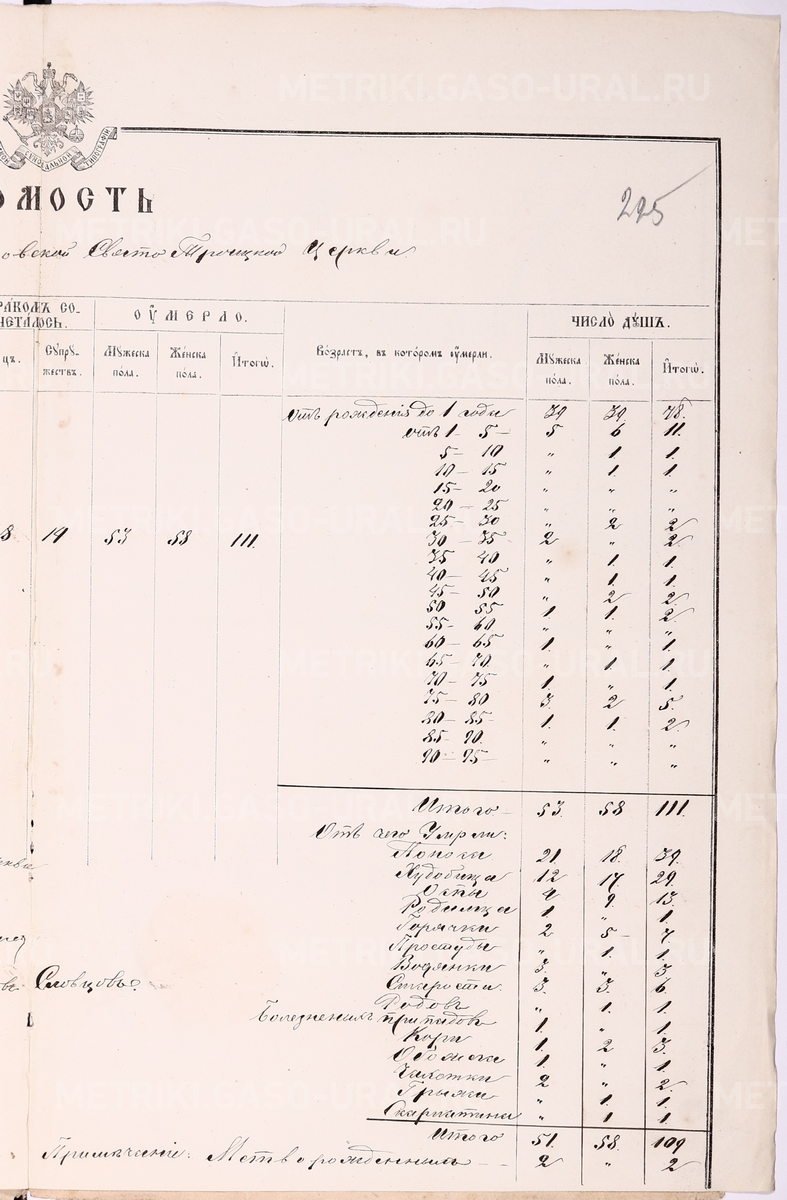 ОМОСТЬ
225
овской Свято Троицкой Церкви
РАКОМЪ СО-
ЧЕТАЛОСЬ.
ОУМЕРЛО.
ЧИСЛО ДУШЪ.
цъ.
Супру-
жествъ.
Мужеска
пола.
Женска
пола.
Итого.
Возрастъ, въ которомъ оумерли.
Мужеска
пола.
Женска
пола.
Итого.
отъ рожденія до 1 года 39 39 78.
отъ 1 - 5 - 5 6 11.
5 - 10 " 1 1.
10 - 15 " 1. 1
15 - 20 " " "
20 - 25 " " "
25 - 30 " 2 2
8 19 53 58 111.
30 - 35 2 " 2
35 40 " 1. 1.
40 - 45 " 1. 1.
45 - 50 " 2 2.
50 55 1. 1. 2
55 - 60 " " "
60 - 65 1. " 1.
65 - 70. " 1. 1.
70 - 75 1. " 1.
75 - 80 3. 2 5.
80 - 85 - 1. 1. 2.
85 - 90. " " "
90 - 95 - " " "
Итого 53. 58 111.
Отъ чего Умерли:
Поноса 21. 18. 39.
Худобища 12 17. 29.
Оспы 4 9. 13.
Родимца 1. " 1.
Горячки 2 5 - 7.
Простуды " 1. 1.
Водянки 3. " 3
въ Словцовъ.
Старости 3. 3. 6.
Родовъ " 1. 1.
Болезненыхъ припадовъ 1. " 1.
Кори 1. 2 3.
Обожога 1. " 1.
Чахотки 2 " 2.
Грыжи " 1. 1.
Скарлатины " 1 1.
Итого 51. 58. 109
Примѣчаніе: Мертворожденныхъ - - 2 " 2
METRIKI.GASO-URAL.RU